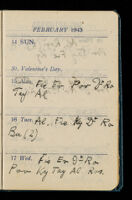 FEBRUARY 1943
14 SUN.
S. Valentine's Day.
15 Mon. Fie Er Por Dr Ro
Tay Al
16 Tues. Al. Fie Ky Dr Ro
Bu (2)
17 Wed. Fie Er Dr Ro
Poo Ky Tay Al Ros.